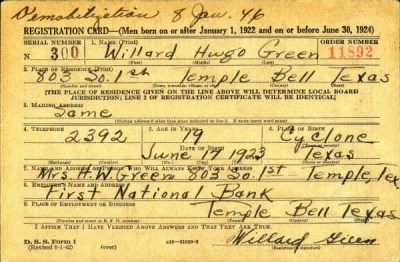 Demobilization 8 Jan. 46
REGISTRATION CARD—(Men born on or after January 1, 1922 and on or before June 30, 1924)
SERIAL NUMBER 1. NAME (Print) ORDER NUMBER
N 300 Willard Hugo Green 11892
(First) (Middle) (Last)
2. PLACE OF RESIDENCE (Print)
803 So. 1st Temple Bell Texas
(Number and street) (Town, township, village, or city) (County) (State)
[THE PLACE OF RESIDENCE GIVEN ON THE LINE ABOVE WILL DETERMINE LOCAL BOARD
JURISDICTION; LINE 2 OF REGISTRATION CERTIFICATE WILL BE IDENTICAL]
3. MAILING ADDRESS
Same
[Mailing address if other than place indicated on line 2. If same insert word same]
4. TELEPHONE 5. AGE IN YEARS 6. PLACE OF BIRTH
2392 19 Cyclone
DATE OF BIRTH (Town or county)
June 17 1923 Texas
(Exchange) (Number) (Mo.) (Day) (Yr.) (State or country)
7. NAME AND ADDRESS OF PERSON WHO WILL ALWAYS KNOW YOUR ADDRESS
Mrs. H. H. Green 803 So. 1st Temple, Tex
8. EMPLOYER'S NAME AND ADDRESS
First National Bank
9. PLACE OF EMPLOYMENT OR BUSINESS
Temple Bell Texas
(Number and street or R. F. D. number) (Town) (County) (State)
I AFFIRM THAT I HAVE VERIFIED ABOVE ANSWERS AND THAT THEY ARE TRUE.
D. S. S. Form 1
(Revised 6-1-42) (over) Willard Green